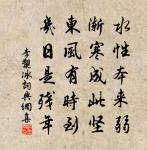 水性本來弱
漸寒成此堅
東風有時到
幾日是殘年
李覯冰詞典網集